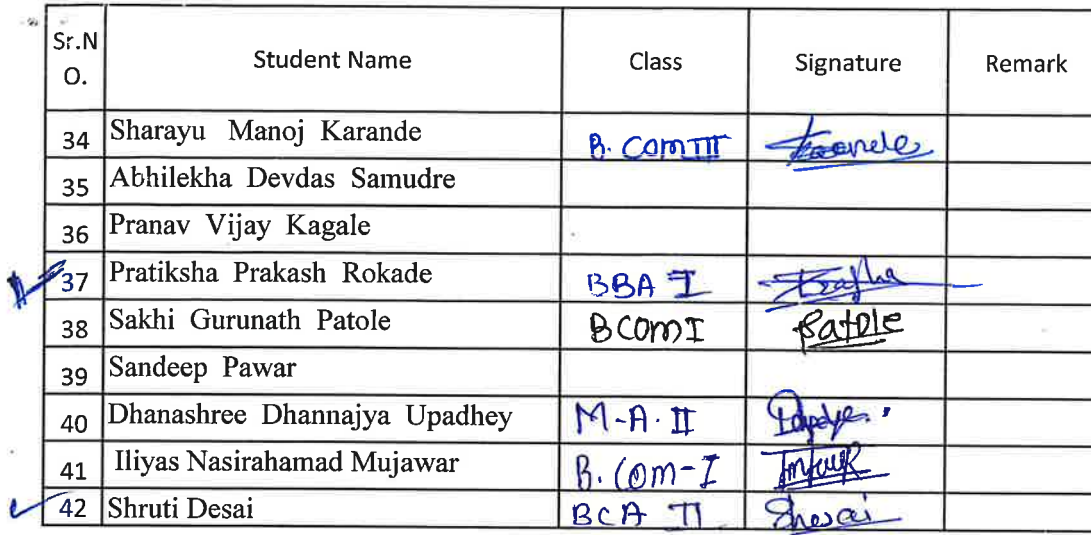 Sr.N O. Student Name Class Signature Remark
34 Sharayu Manoj Karande B. COM III
35 Abhilekha Devdas Samudre
36 Pranav Vijay Kagale
37 Pratiksha Prakash Rokade BBA I
38 Sakhi Gurunath Patole BCOM I Patole
39 Sandeep Pawar
40 Dhanashree Dhannajya Upadhey M-A. II
41 Iliyas Nasirahamad Mujawar B. Com-I
42 Shruti Desai BCA II